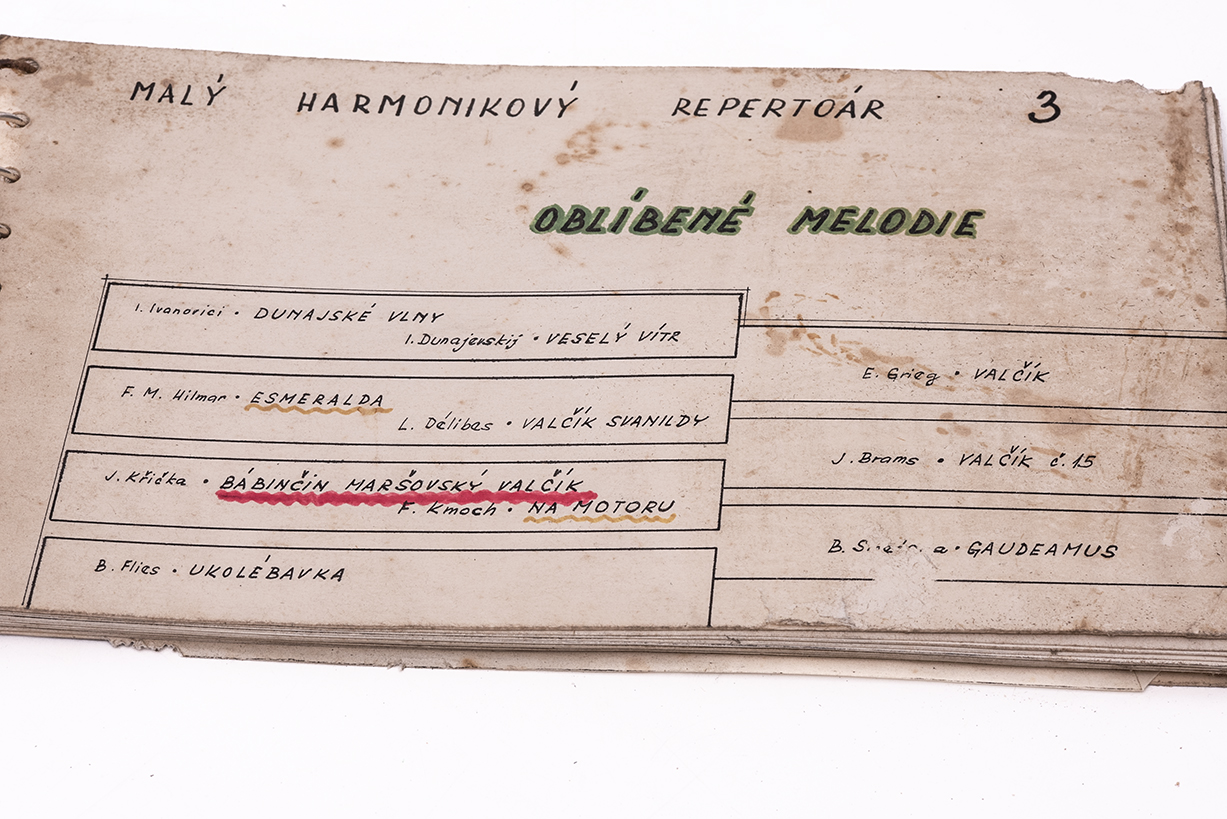 MALÝ HARMONIKOVÝ REPERTOÁR 3
OBLÍBENÉ MELODIE
I. Ivanovici • DUNAJSKÉ VLNY
I. Dunajevskij • VESELÝ VÍTR
F. M. Hilmar • ESMERALDA
L. Délibes • VALČÍK SVANILDY
J. Křička • BÁBINČIN MARŠOVSKÝ VALČÍK
F. Kmoch • NA MOTORU
B. Flies • UKOLÉBAVKA
E. Grieg • VALČÍK
J. Brams • VALČÍK č. 15
B. • GAUDEAMUS